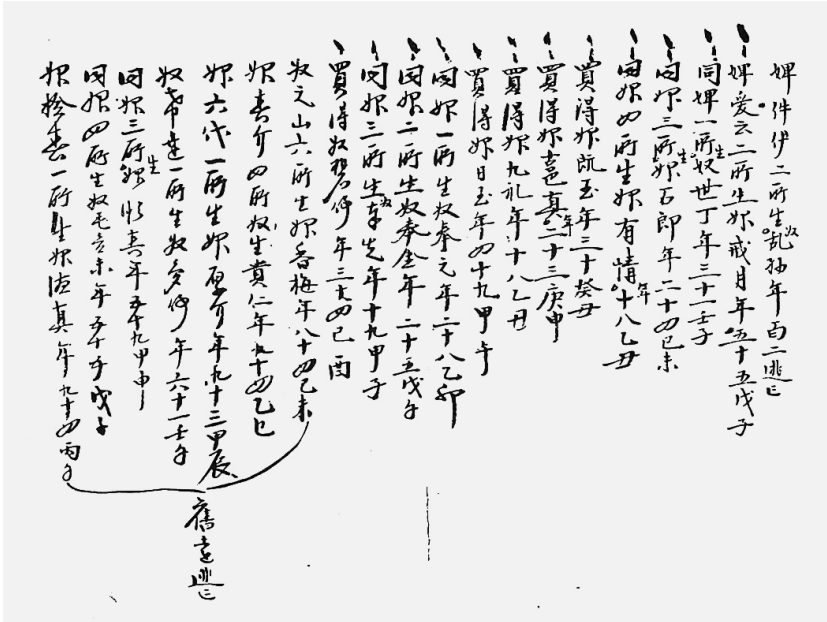 婢件伊二所生奴乱孫年百二逃亡
婢爱云二所生婢戒月年五十五戊子
同婢一所生奴世丁年三十一壬子
同婢三所生婢石郎年二十四己未
同婢四所生婢有情年十八乙丑
買得婢阮玉年三十癸丑
買得婢真年二十三庚申
買得婢九礼年十八乙丑
買得婢日玉年四十九甲午
同婢一所生奴奉元年二十八乙卯
同婢二所生奴奉金年二十五戊午
同婢三所生奴先年十九甲子
買得奴年三十四己酉
奴元山六所生婢香梅年八十四己未
婢春介四所生奴貴仁年九十四乙巳
婢六代一所生婢介年九十三甲辰
奴一所生奴年六十一壬午
同婢三所生婢春年五十九甲申
同婢四所生奴毛音未年五十戊子
婢春一所生婢真年九十四丙子
舊逃亡